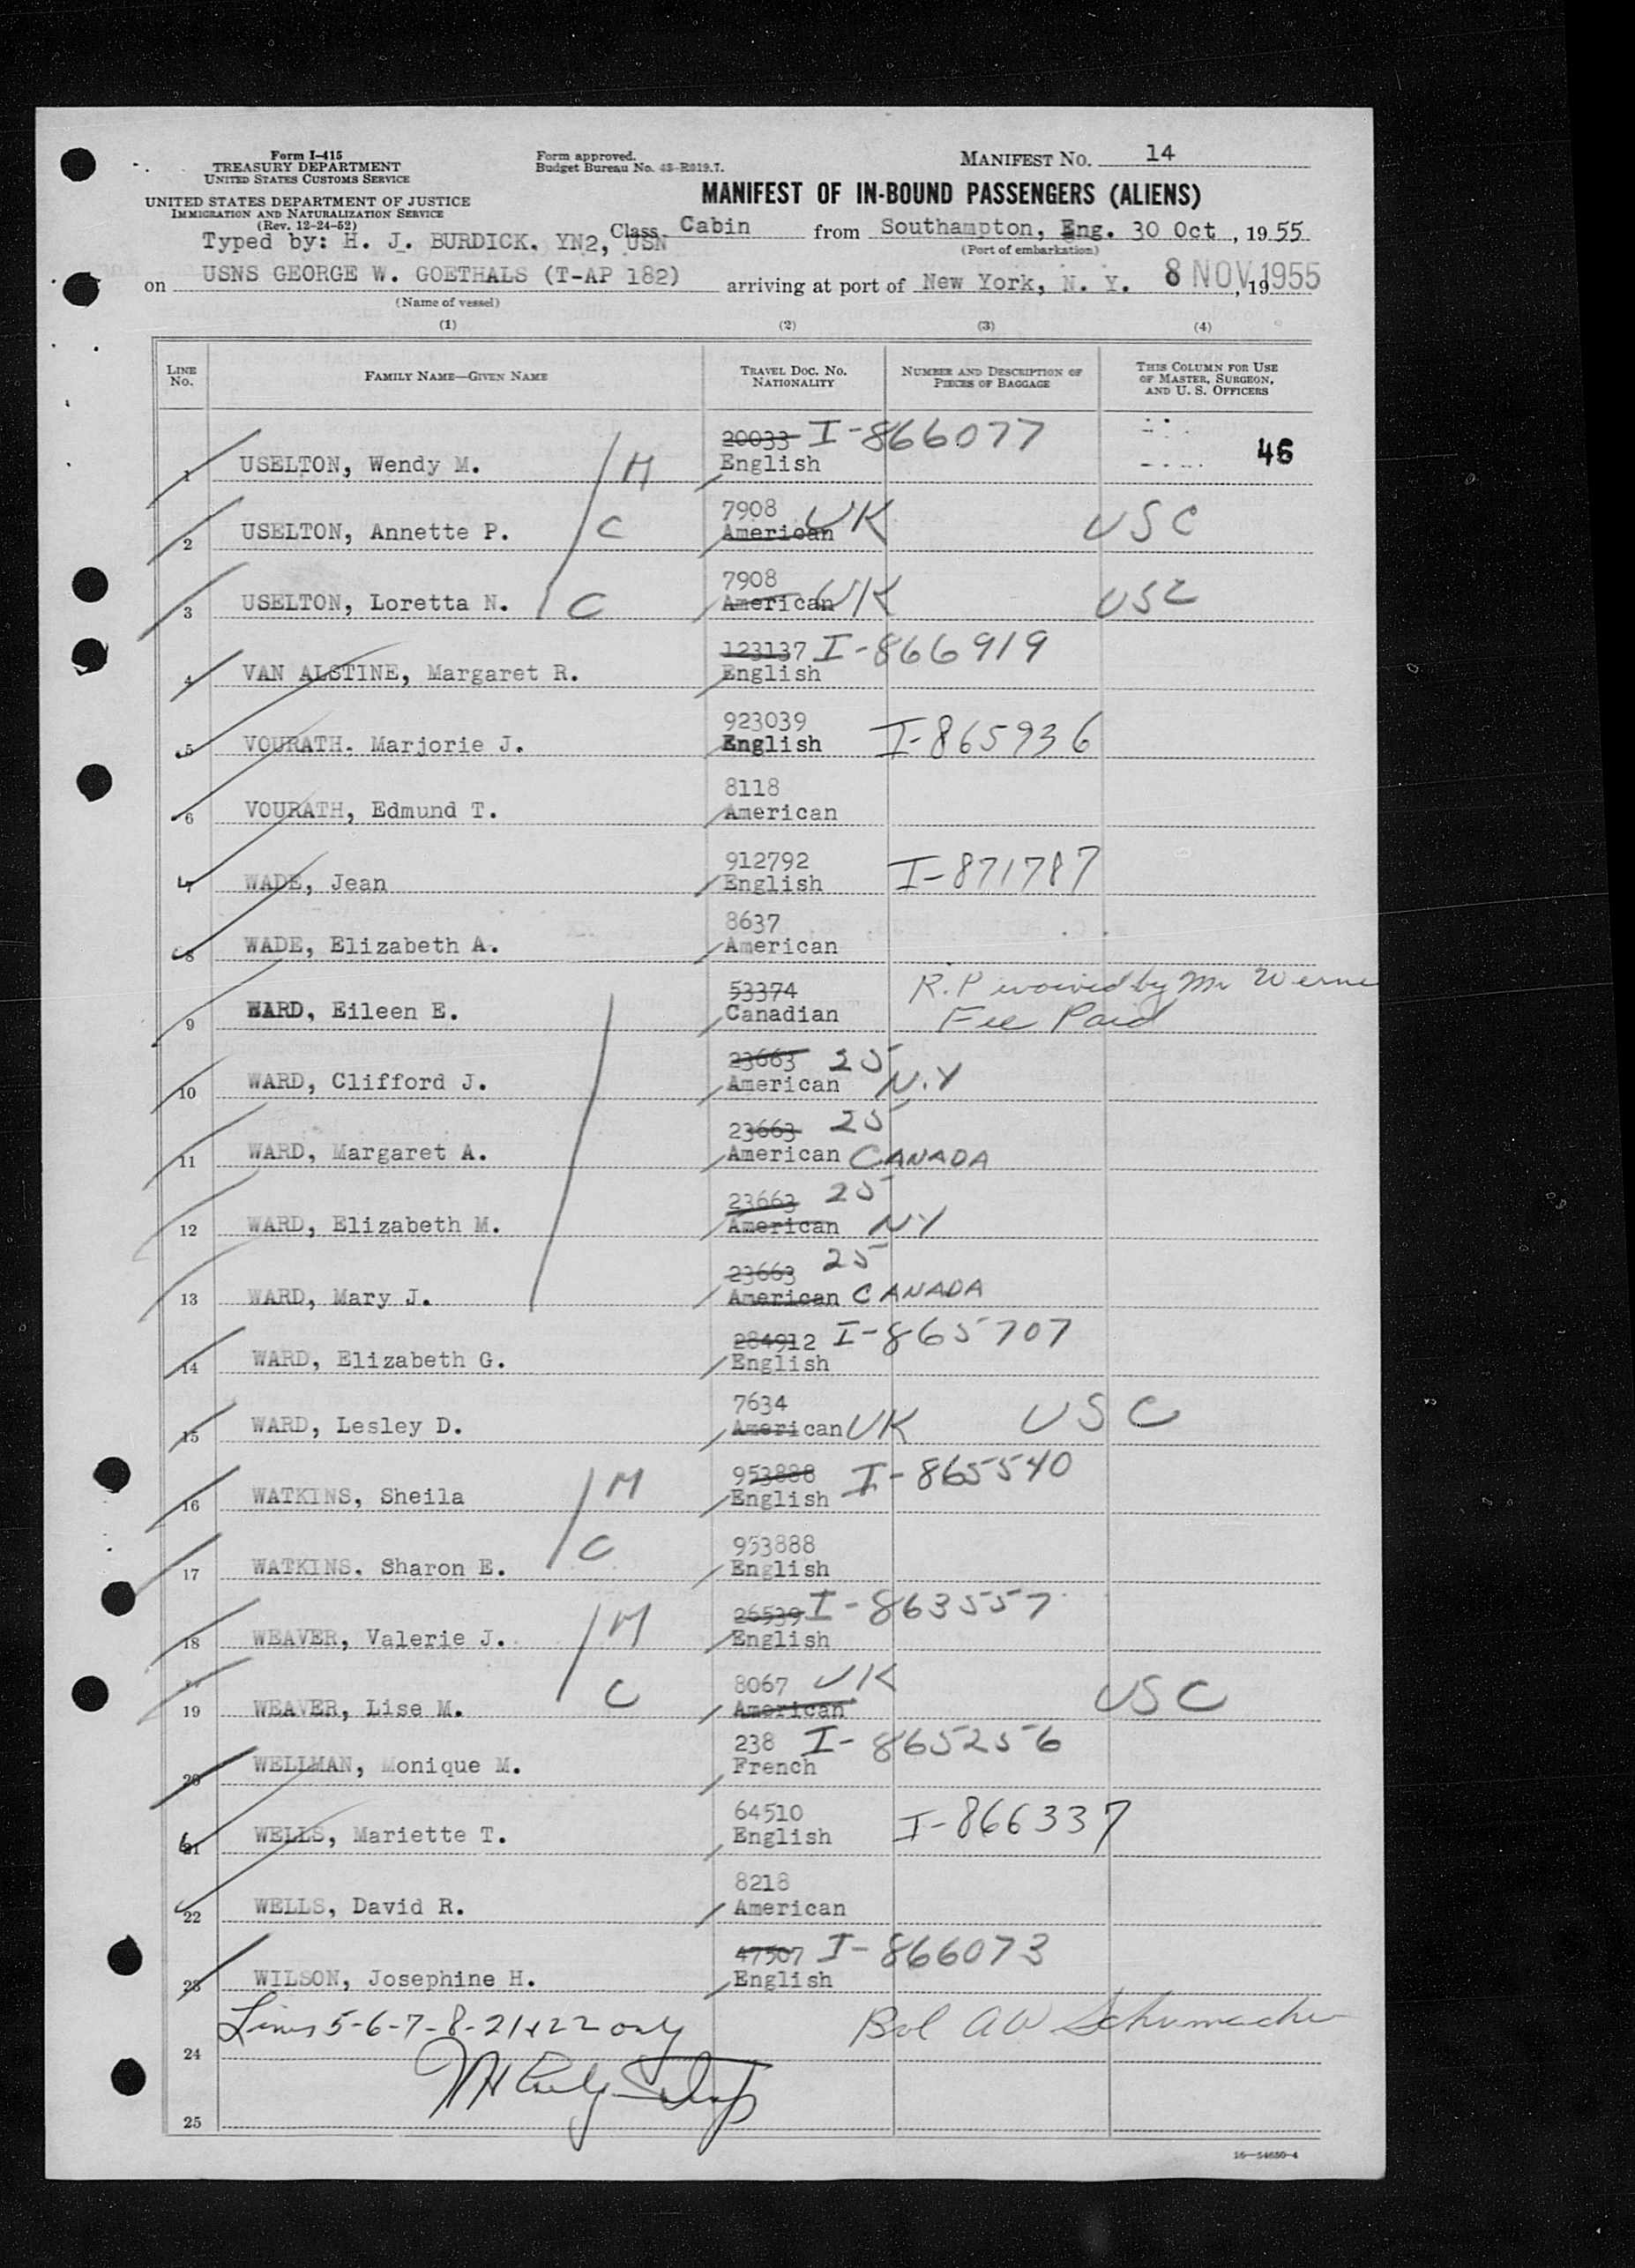 Form I-415
TREASURY DEPARTMENT
UNITED STATES CUSTOMS SERVICE
UNITED STATES DEPARTMENT OF JUSTICE
IMMIGRATION AND NATURALIZATION SERVICE
(Rev. 12-24-52)
Form approved.
Budget Bureau No. 43-R019.7.
MANIFEST NO. 14
MANIFEST OF IN-BOUND PASSENGERS (ALIENS)
Typed by: H. J. BURDICK. YN2, USN
Class Cabin from Southampton, Eng. 30 Oct, 1955
(Port of embarkation)
on USNS GEORGE W. GOETHALS (T-AP 182) arriving at port of New York, N. Y. 8 NOV, 19 1955
(Name of vessel)
(1) (2) (3) (4)
LINE NO.
FAMILY NAME—GIVEN NAME
TRAVEL DOC. NO. NATIONALITY
NUMBER AND DESCRIPTION OF PIECES OF BAGGAGE
THIS COLUMN FOR USE OF MASTER, SURGEON, AND U. S. OFFICERS
20033 I-866077
1 USELTON, Wendy M. M English 46
7908 UK
2 USELTON, Annette P. C American USC
7908
3 USELTON, Loretta N. C American UK USC
123137 I-866919
4 VAN ALSTINE, Margaret R. English
923039
5 VOURATH. Marjorie J. English I-865936
8118
6 VOURATH, Edmund T. American
912792
7 WADE, Jean English I-871787
8637
8 WADE, Elizabeth A. American
53374 R.P waived by Mr
9 WARD, Eileen E. Canadian Fee Paid
23663 25
10 WARD, Clifford J. American N.Y
23663 25
11 WARD, Margaret A. American CANADA
23663 25
12 WARD, Elizabeth M. American NY
23663 25
13 WARD, Mary J. American CANADA
284912 I-865707
14 WARD, Elizabeth G. English
7634
15 WARD, Lesley D. American UK USC
953888 I-865540
16 WATKINS, Sheila M English
953888
17 WATKINS. Sharon E. C English
26539 I-863557
18 WEAVER, Valerie J. M English
8067 UK
19 WEAVER, Lise M. C American USC
238 I-865256
20 WELLMAN, Monique M. French
64510
21 WELLS, Mariette T. English I-866337
8218
22 WELLS, David R. American
47507 I-866073
23 WILSON, Josephine H. English
Lines 5-6-7-8-21+22 only
AW Schumacher
24
25
16—54650-4